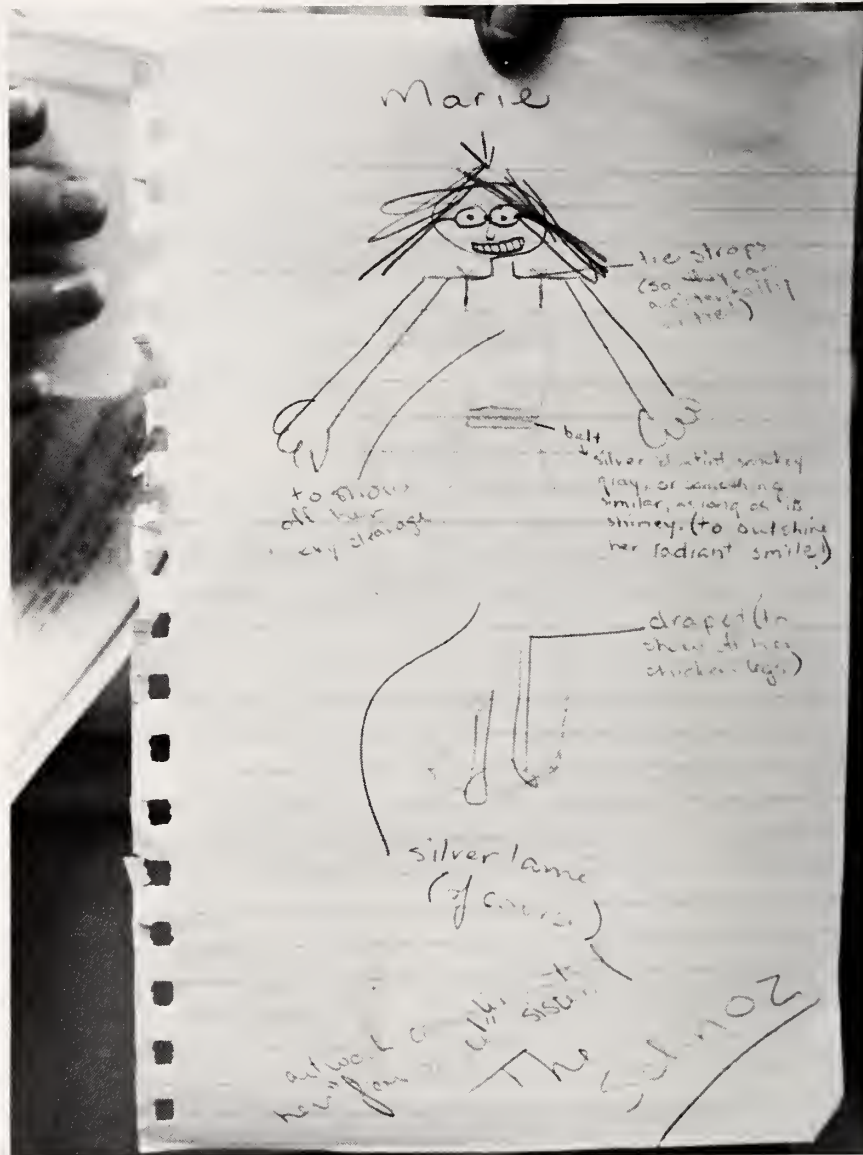 Marie
tie straps
(so they can
accidentally
untie)
belt
silver
smokey
gray, or something
similar, as long as its
shiney. (to outshine
her radiant smile!)
to show
off her
cleavage
drapet (to
show off her
chicken legs)
silver lame
(of course)
artwork
her
sister
The Schnoz